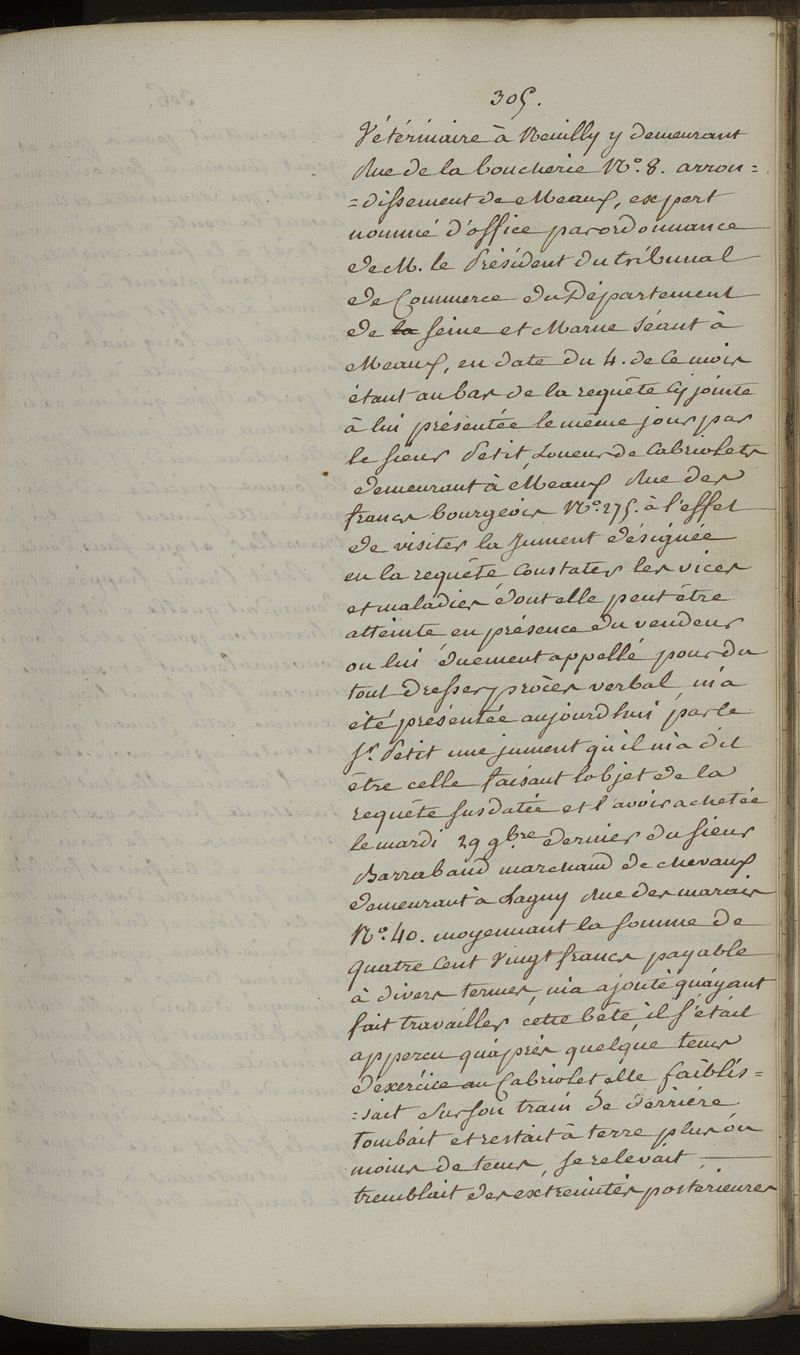 305.
Vétérinaire à Neuilly y demeurant
Rue de la boucherie N.º 8. arron=
=dissement de Meaux, expert
nommé d'office par ordonnance
de M. le Président du tribunal
de Commerce du Département
de la Seine et Marne séant à
Meaux, en date du 4. de ce mois
étant au bas de la requête cy jointe
à lui présentée le même jour par
le sieur Petit Loueur de Cabriolets
demeurant à Meaux Rue des
francs bourgeois N.º 275. à l'effet
de visiter la Jument désignée
en la requête Constater les vices
et maladies dont elle peut être
atteinte en présence du vendeur
ou lui duement appellé pour du
tout dresser procès verbal, m'a
été présentée aujourdhui par le
S.r Petit une jument qu'il m'a dit
être celle faisant lobjet de la
requête susdatée et l'avoir achetée
le mardi 29 9bre dernier du sieur
Barraband marchand de chevaux
demeurant à Lagny Rue des marais
N.º 40. moyennant la somme de
quatre Cent Vingt francs payable
à divers termes, m'a ajouté qu'ayant
fait travailler cette bête il s'était
apperçu qu'après quelque tems
d'exercice au Cabriolet elle faiblis=
=sait sur son train de derrière
tombait et restait à terre plus ou
moins de tems, se relevait,
tremblait des extrémités posterieures